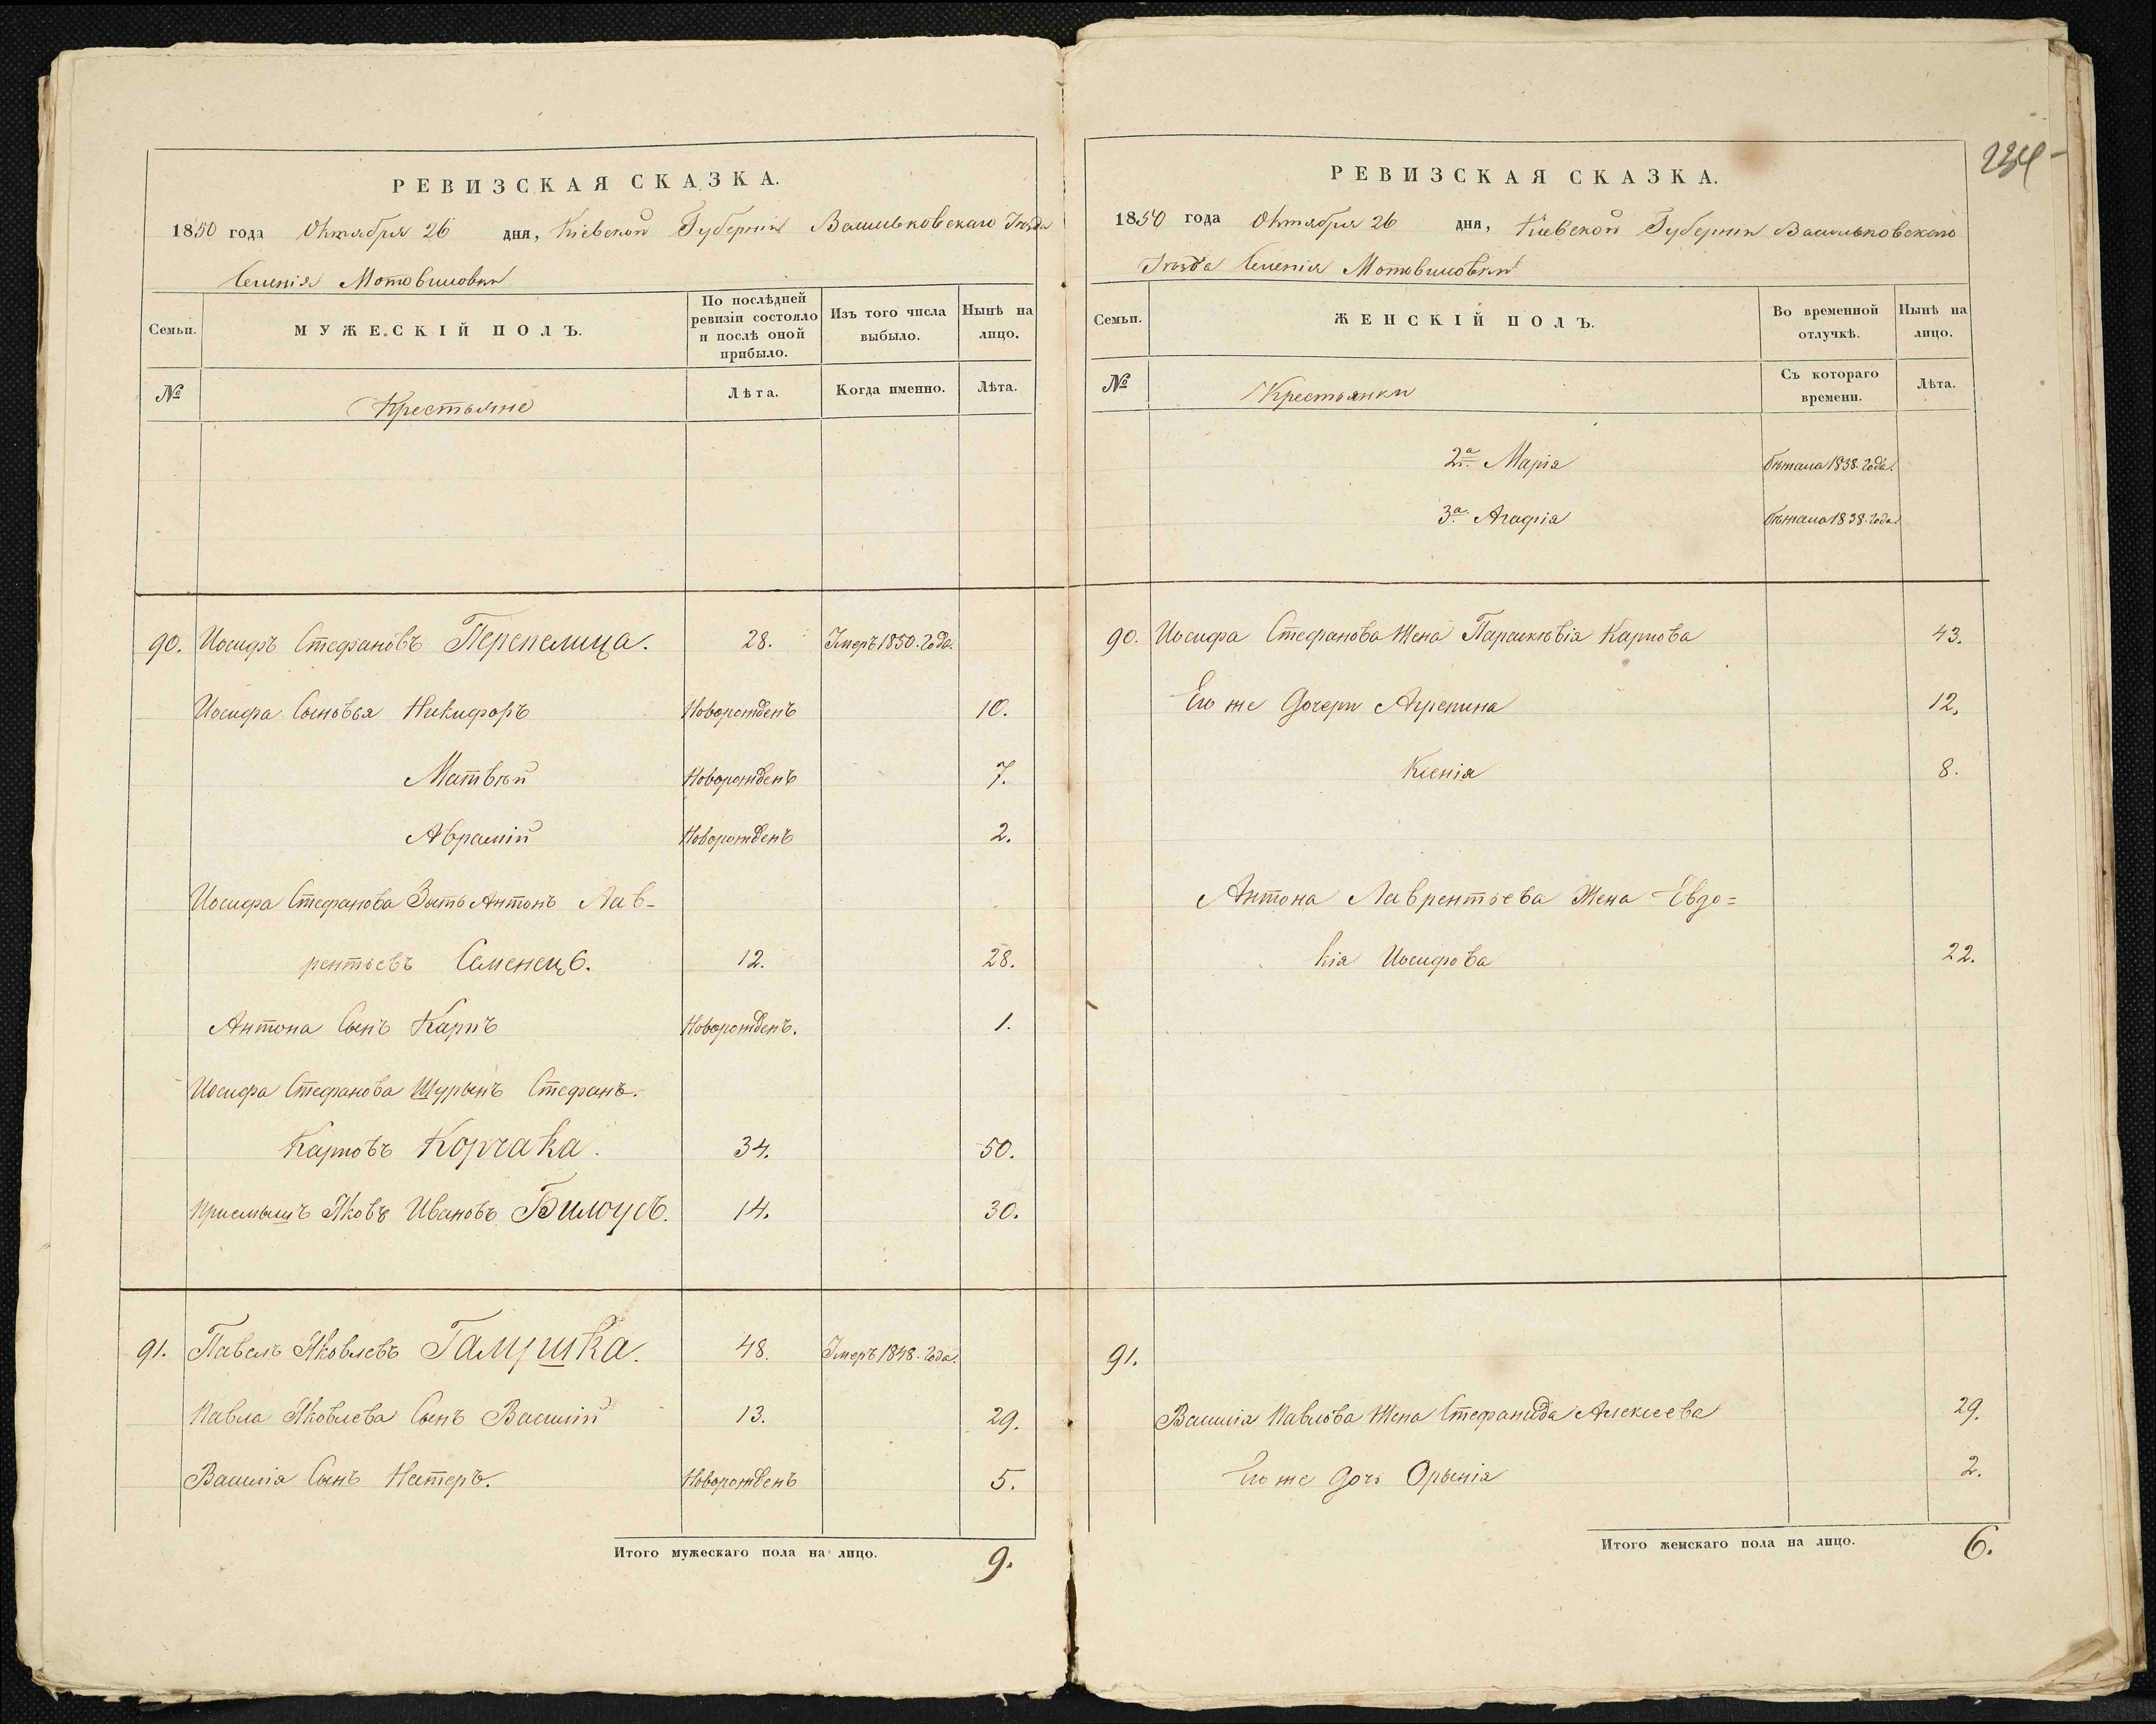 РЕВИЗСКАЯ СКАЗКА.
1850 года Октября 26 дня, Кіевской Губерніи Васильковскаго Уѣзда
Селенія Мотовиловки
Семьи.
МУЖЕСКІЙ ПОЛЪ.
По послѣдней
ревизіи состояло
и послѣ оной
прибыло.
Изъ того числа
выбыло.
Нынѣ на
лицо.
№
Крестьяне
Лѣта.
Когда именно.
Лѣта.
90. Иосифъ Стефановъ Перепелица. 28. Умеръ 1850. года.
Иосифа Сыновья Никифоръ Новорожденъ 10.
Матвѣй Новорожденъ 7.
Аврамій Новорожденъ 2.
Иосифа Стефанова Зять Антонъ Лав-
рентьевъ Семенецъ. 12. 28.
Антона Сынъ Карпъ Новорожденъ. 1.
Иосифа Стефанова Шурынъ Стефанъ.
Карповъ Корчака. 34. 50.
Приемышъ Яковъ Ивановъ Билоусъ. 14. 30.
91. Павелъ Яковлевъ Галушка. 48. Умеръ 1848. года.
Павла Яковлева Сынъ Василій 13. 29.
Василія Сынъ Нестеръ. Новорожденъ 5.
Итого мужескаго пола на лицо. 9.
234
РЕВИЗСКАЯ СКАЗКА.
1850 года Октября 26 дня, Кіевской Губерніи Васильковскаго
Уѣзда Селенія Мотовиловки
Семьи.
ЖЕНСКІЙ ПОЛЪ.
Во временной
отлучкѣ.
Нынѣ на
лицо.
№
Крестьянки
Съ котораго
времени.
Лѣта.
2а. Марія бѣжала 1838. года.
3а. Агафія бѣжала 1838. года
90. Иосифа Стефанова Жена Параскѣвія Карпова 43.
Его же Дочери Агрепина 12.
Ксенія 8.
Антона Лаврентьева Жена Евдо=
кія Иосифова 22.
91.
Василія Павлова Жена Стефанида Алексеева 29.
Его же Дочь Орынія 2.
Итого женскаго пола на лицо. 6.